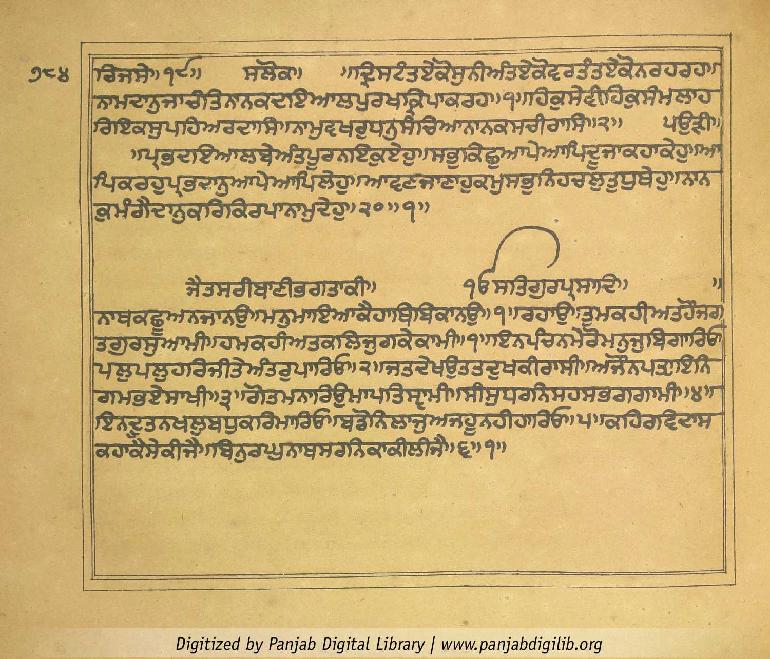 ੭੮੪
ਰਿਜਸੇ॥੧੯॥ ਸਲੋਕ॥ ॥ਦ੍ਰਿਸਟੰਤਏਕੋਸੁਨੀਅੰਤਏਕੋਵਰਤੰਤਏਕੋਨਰਹਰਹ॥
ਨਾਮਦਾਨੁਜਾਚੰਤਿਨਾਨਕਦਇਆਲਪੁਰਖਕ੍ਰਿਪਾਕਰਹ॥੧॥ਹਿਕੁਸੇਵੀਹਿਕੁਸੰਮਲਾਹ
ਰਿਇਕਸੁਪਹਿਅਰਦਾਸਿ॥ਨਾਮੁਵਖਰੁਧਨੁਸੰਚਿਆਨਾਨਕਸਚੀਰਾਸਿ॥੨॥ ਪਉੜੀ॥
॥ਪ੍ਰਭਦਇਆਲਬੇਅੰਤਪੂਰਨਇਕੁਏਹੁ॥ਸਭੁਕਿਛੁਆਪੇਆਪਿਦੂਜਾਕਹਾਕੇਹੁ॥ਆ
ਪਿਕਰਹੁਪ੍ਰਭਦਾਨੁਆਪੇਆਪਿਲੇਹੁ॥ਆਵਣਜਾਣਾਹੁਕਮੁਸਭੁਨਿਹਚਲੁਤੁਧੁਥੇਹੁ॥ਨਾਨ
ਕੁਮੰਗੈਦਾਨੁਕਰਿਕਿਰਪਾਨਾਮੁਦੇਹੁ॥੨੦॥੧॥
ਜੈਤਸਰੀਬਾਣੀਭਗਤਾਕੀ॥ ੴਸਤਿਗੁਰਪ੍ਰਸਾਦਿ॥ ॥
ਨਾਥਕਛੂਅਨਜਾਨਉ॥ਮਨੁਮਾਇਆਕੈਹਾਥਿਬਿਕਾਨਉ॥੧॥ਰਹਾਉ॥ਤੁਮਕਹੀਅਤਹੌਜਗ
ਤਗੁਰਸੁਆਮੀ॥ਹਮਕਹੀਅਤਕਲਿਜੁਗਕੇਕਾਮੀ॥੧॥ਇਨਪੰਚਨਮੇਰੋਮਨੁਜੁਬਿਗਾਰਿਓ॥
ਪਲੁਪਲੁਹਰਿਜੀਤੇਅੰਤਰੁਪਾਰਿਓ॥੨॥ਜਤਦੇਖਉਤਤਦੁਖਕੀਰਾਸੀ॥ਅਜੌਨਪਤ੍ਯਾਇਨਿ
ਗਮਭਏਸਾਖੀ॥੩॥ਗੋਤਮਨਾਰਿਉਮਾਪਤਿਸ੍ਵਾਮੀ॥ਸੀਸੁਧਰਨਿਸਹਸਭਗਗਾਮੀ॥੪॥
ਇਨਦੂਤਨਖਲੁਬਧੁਕਰਿਮਾਰਿਓ॥ਬਡੋਨਿਲਾਜੁਅਜਹੂਨਹੀਹਾਰਿਓ॥੫॥ਕਹਿਰਵਿਦਾਸ
ਕਹਾਕੈਸੇਕੀਜੈ॥ਬਿਨੁਰਘੁਨਾਥਸਰਨਿਕਾਕੀਲੀਜੈ॥੬॥੧॥
Digitized by Panjab Digital Library | www.panjabdigilib.org